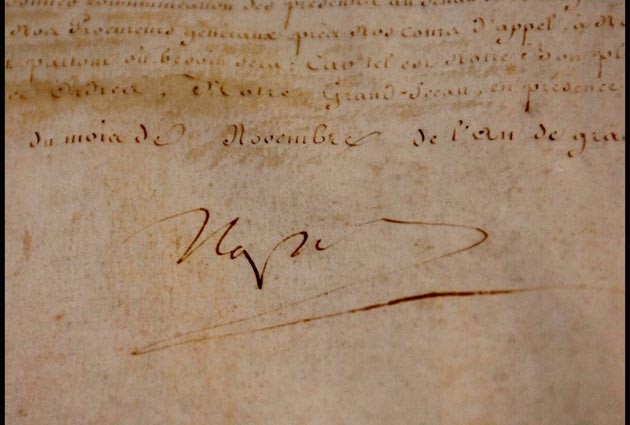 donner communication des présentes au Sénat
Nos Procureurs généraux près nos cours d'appel, à N
partout où besoin sera: Car tel est Notre Bon pl
Ordres, Notre Grand-Sceau, en présence
du mois de Novembre de l'an de grâ
Nap